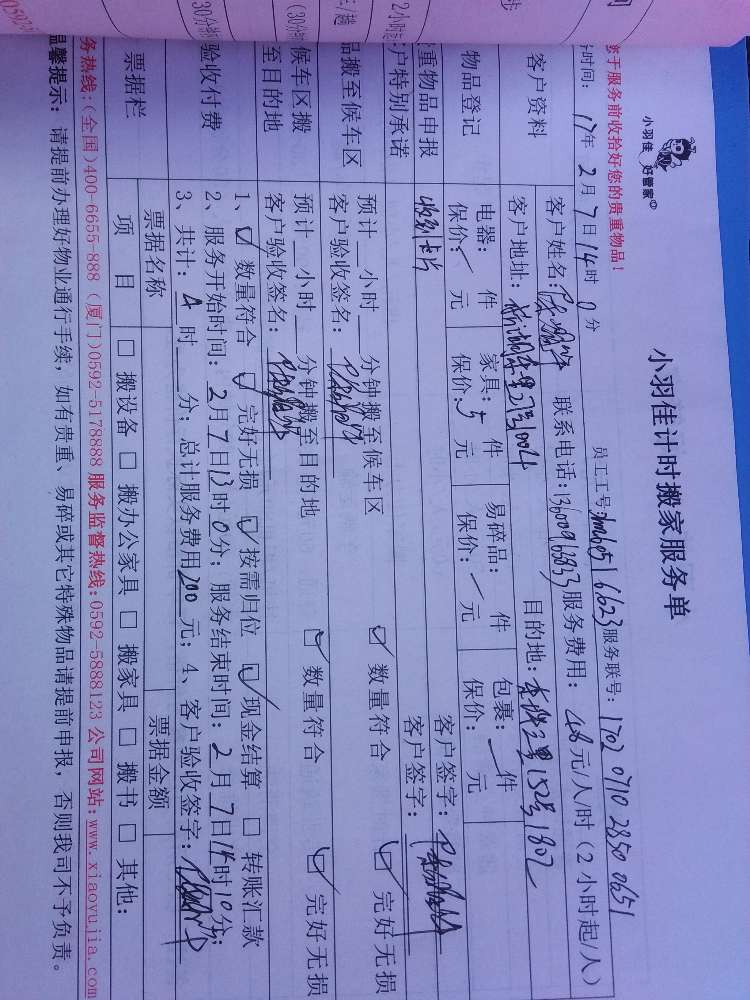 小羽佳 好管家
小羽佳计时搬家服务单
于服务前收拾好您的贵重物品!
时间: 17年 2月 7日 14时 0分 员工工号: 服务联号: 1702 0710 2850 0651
客户资料
客户姓名: 联系电话: 服务费用: 48元/人/时(2小时起/人)
客户地址: 目的地:
物品登记
电器: 件 家具: 件 易碎品: 件 包裹: 件
保价: 元 保价: 元 保价: 元 保价: 元
重物品申报 客户签字:
户特别承诺 收到卡片 客户签字:
品搬至候车区
预计 小时 分钟搬至候车区 数量符合 完好无损
客户验收签名:
候车区搬
至目的地
预计 小时 分钟搬至目的地 数量符合 完好无损
客户验收签名:
验收付费
1、 数量符合 完好无损 按需归位 现金结算 转账汇款
2、服务开始时间: 2月7日13时0分; 服务结束时间: 2月7日14时10分;
3、共计: 时 分; 总计服务费用200元; 4、客户验收签字:
票据栏
票据名称 票据金额
项 目 □ 搬设备 □ 搬办公家具 □ 搬家具 □ 搬书 □ 其他:
务热线:(全国)400-6655-888 (厦门)0592-5178888 服务监督热线:0592-5888123 公司网站:www.xiaoyujia.com
温馨提示: 请提前办理好物业通行手续, 如有贵重、易碎或其它特殊物品请提前申报, 否则我司不予负责。